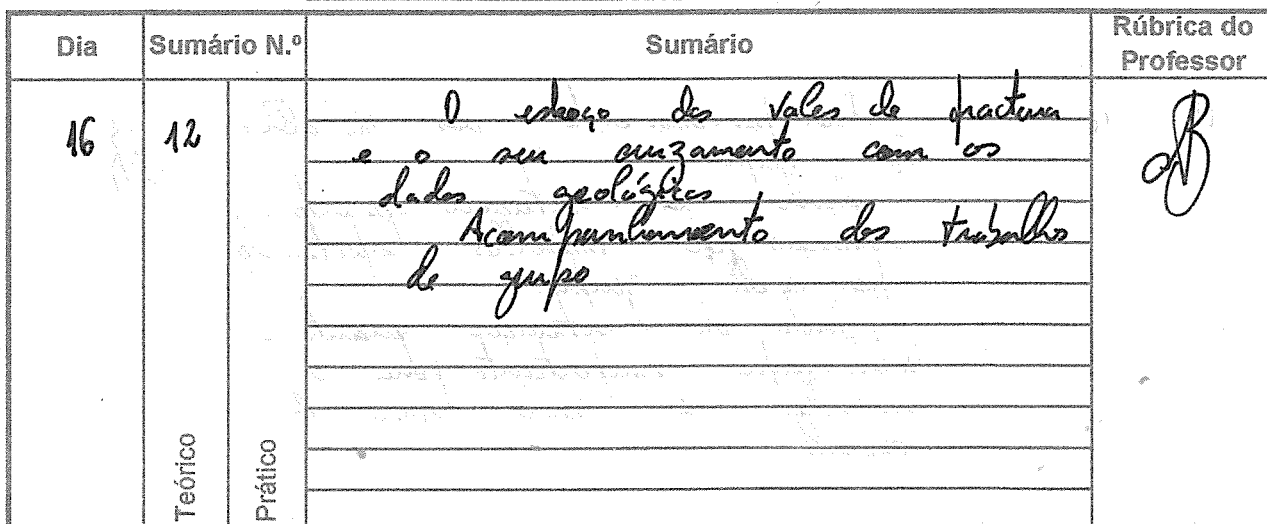 Dia
Sumário N.º
Sumário
Rúbrica do
Professor
16
12
O esboço dos Vales de fractura
e o seu cruzamento com os
dados geológicos
Acompanhamento dos trabalho
de grupo
Teórico
Prático